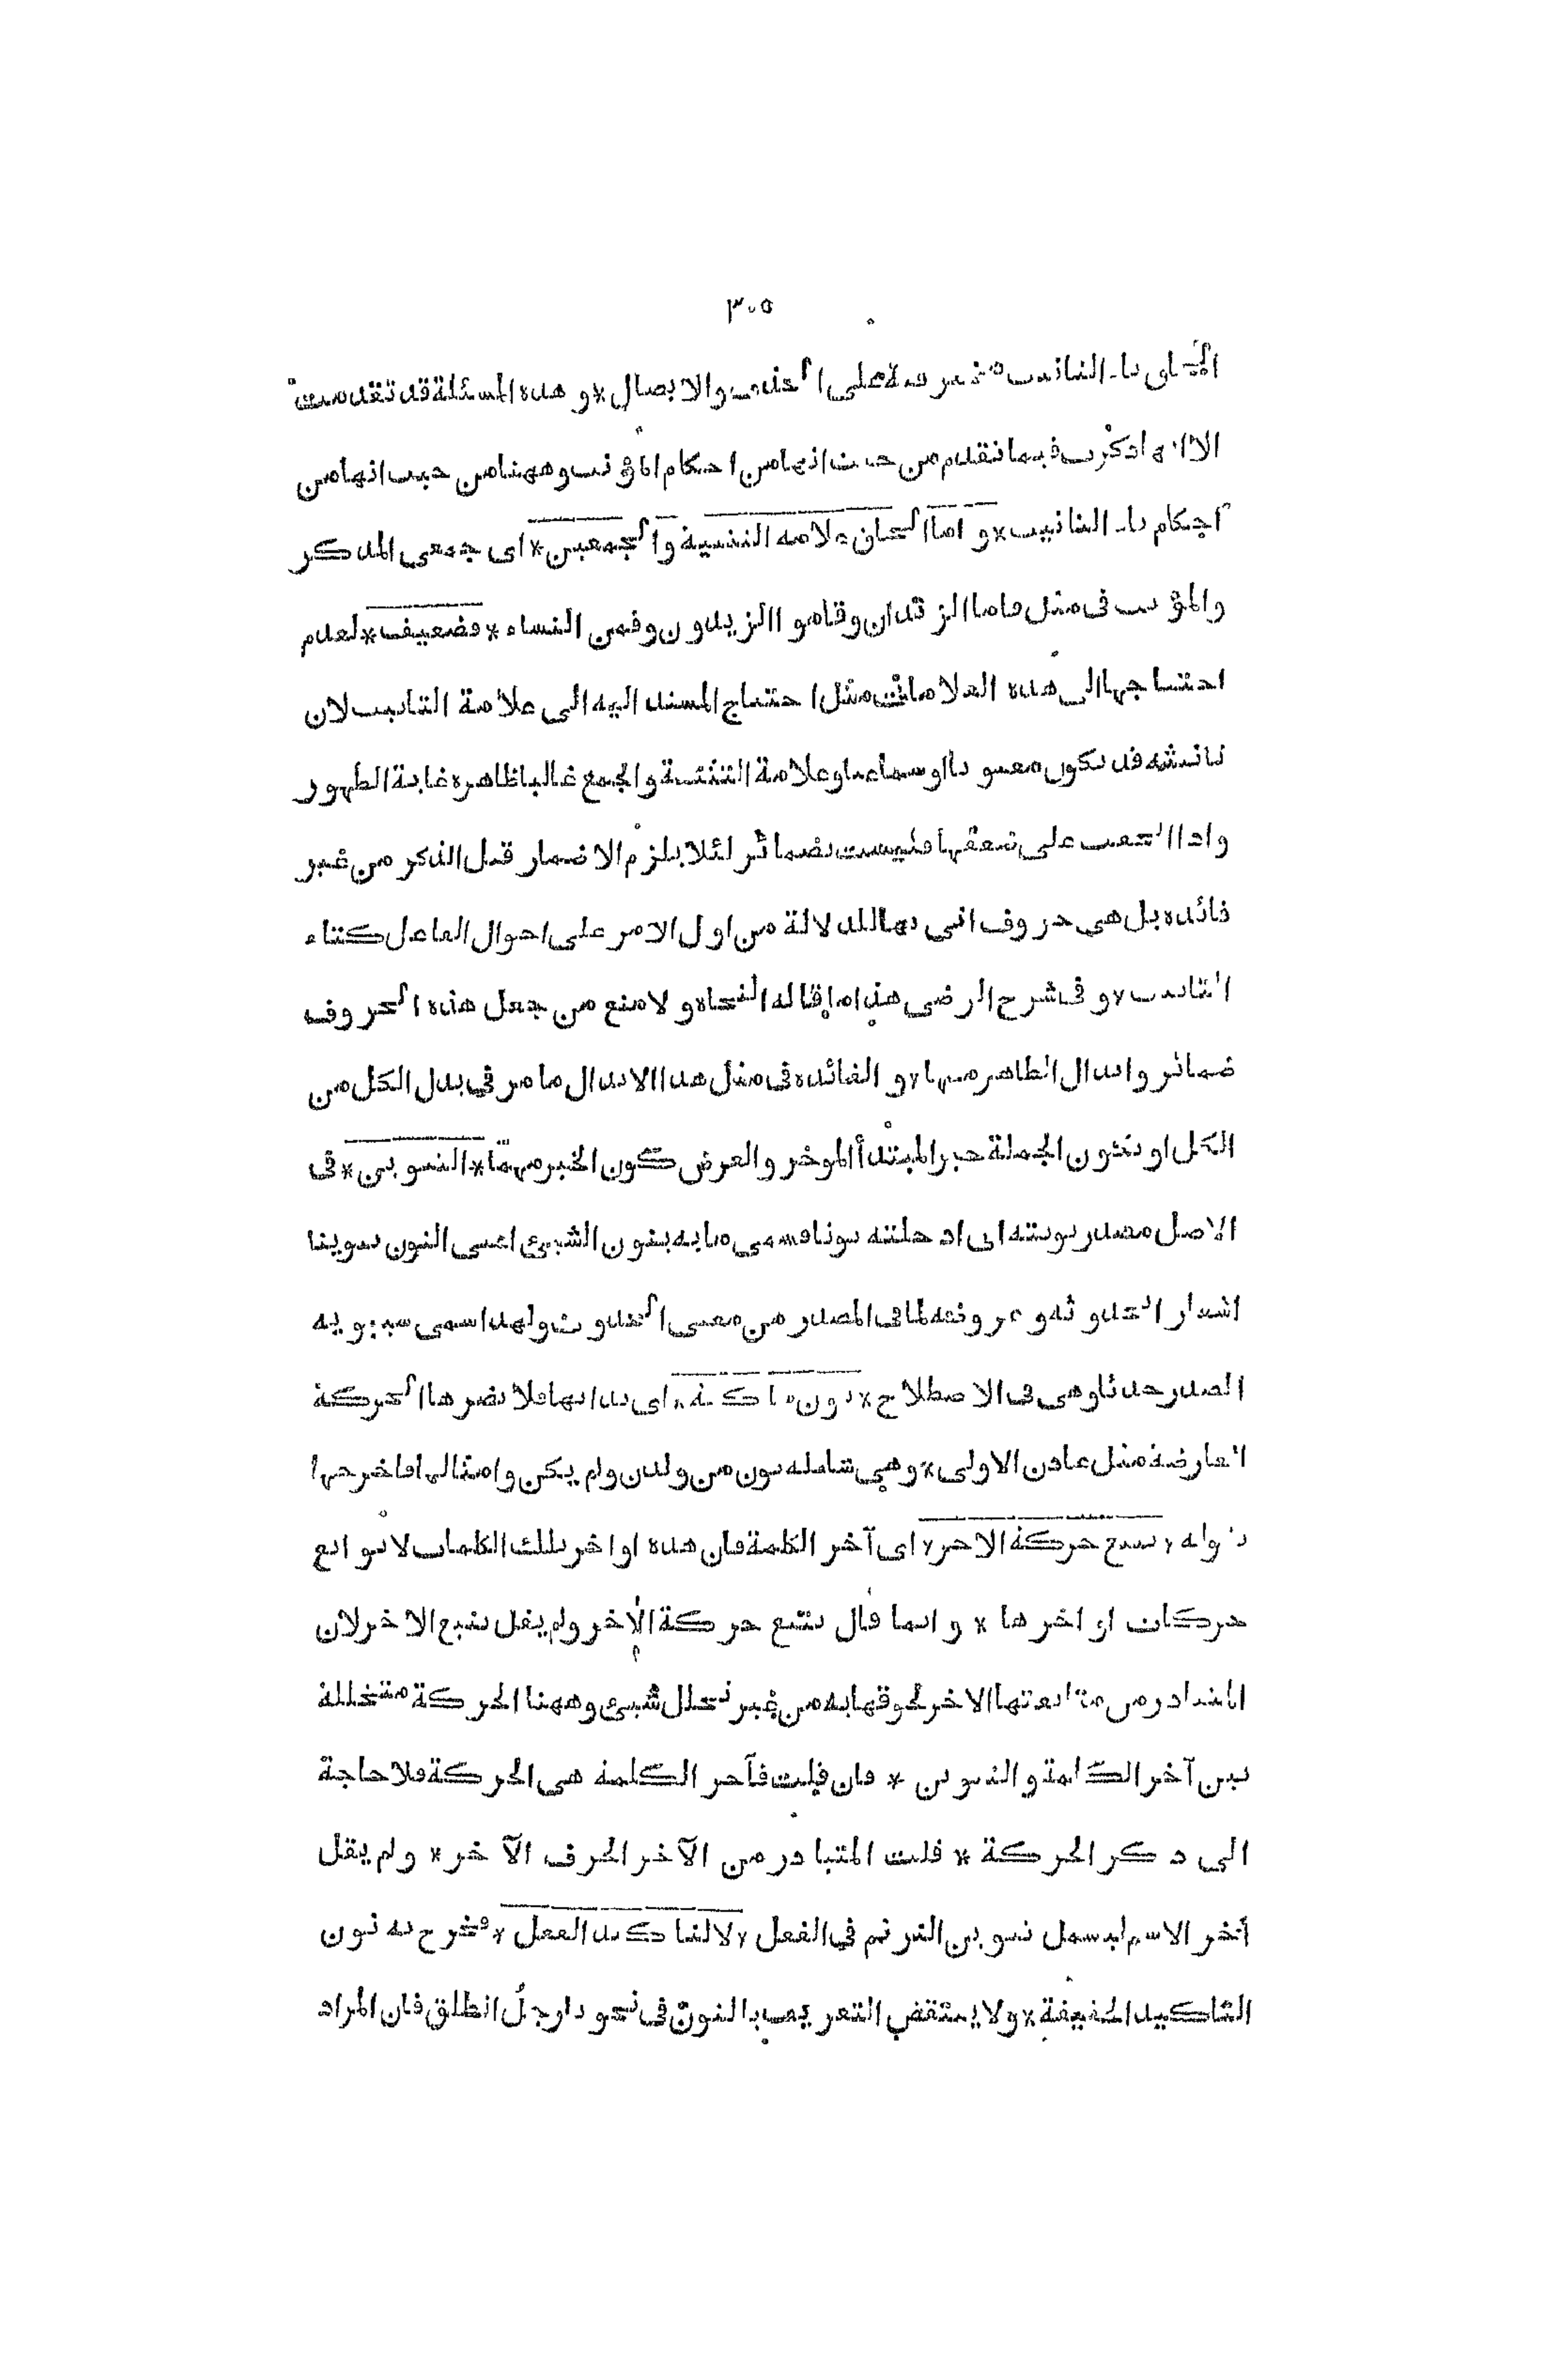 ٣٠٥
الحاق تاء التانيث مخير فيه على الحذف والايصال * وهذه المسئلة قد تقدمت
الا انها ذكرت فيما تقدم من حيث انها من احكام المؤنث وههنا من حيث انها من
احكام تاء التانيث * و اما الحاق علامة التثنية والجمعين * اى جمعى المذكر
والمؤنث فى مثل قاما الزيدان وقاموا الزيدون وقمن النساء * فضعيف * لعدم
احتياجها الى هذه العلامات مثل احتياج المسند اليه الى علامة التانيث لان
تانيثه قد يكون معنويا او سماعيا وعلامة التثنية والجمع غالبا ظاهرة غاية الظهور
واذا الحقت على ضعفها فليست بضمائر لئلا يلزم الاضمار قبل الذكر من غير
فائدة بل هى حروف اتى بها للدلالة من اول الامر على احوال الفاعل كتاء
التانيث * و فى شرح الرضى هذا ما قاله النحاة ولا منع من جعل هذه الحروف
ضمائر وابدال الظاهر منها * و الفائدة فى مثل هذا الابدال ما مر فى بدل الكل من
الكل او تكون الجملة خبر المبتدأ الموخر والغرض كون الخبر مهمّا * التنوين * فى
الاصل مصدر نونته اى ادخلته نونا فسمى ما به ينون الشيئ اعنى النون تنوينا
اشعارا بحدوثه وعروضه لما فى المصدر من معنى الحدوث ولهذا سمى سيبويه
المصدر حدثا وهى فى الاصطلاح * نون ساكنة * اى بذاتها فلا يضرها الحركة
العارضة مثل عادن الاولى * وهى شاملة لنون من ولدن ولم يكن وامثالها فاخرجها
بقوله * تتبع حركة الاخر * اى آخر الكلمة فان هذه اواخر تلك الكلمات لا توابع
حركات اواخرها * و انما قال تتبع حركة الاخر ولم يقل تتبع الاخر لان
المتبادر من متابعتها الاخر لحوقها به من غير تخلل شيئ وههنا الحركة متخللة
بين آخر الكلمة والتنوين * فان قلت فآخر الكلمة هى الحركة فلا حاجة
الى ذكر الحركة * قلت المتبادر من الآخر الحرف الآخر * ولم يقل
آخر الاسم ليشمل تنوين الترنم فى الفعل * لا لتاكيد الفعل * فخرج به نون
التاكيد الخفيفة * ولا ينتقض التعريف بالنون فى نحو يا رجلُ انطلق فان المراد